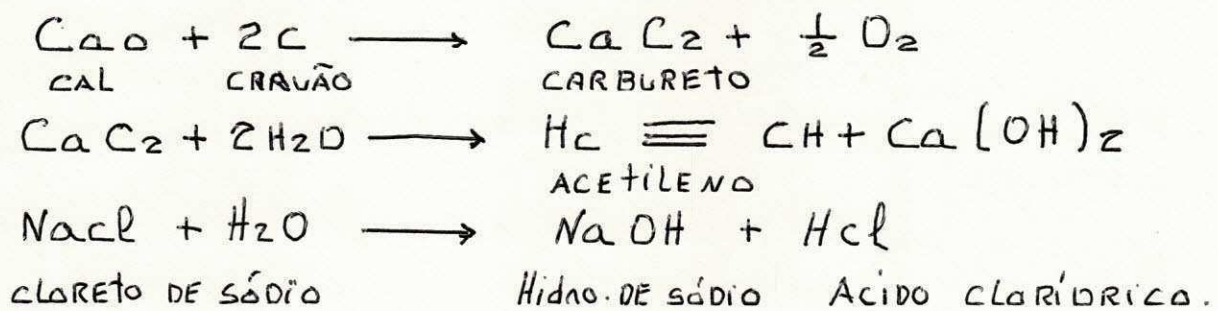 Cao + 2C ⟶ CaC2 + ½ O2
CAL CRAVÃO CARBURETO
CaC2 + 2H2O ⟶ Hc ≡ CH + Ca(OH)2
ACEtiLENO
Nacl + H2O ⟶ NaOH + Hcl
CLORETO DE SÓDIO Hidro. DE SÓDIO ACIDO CLORÍDRICO.